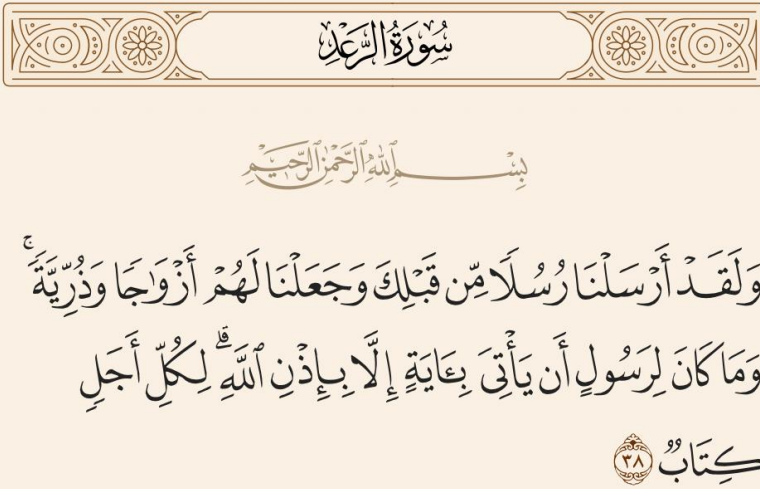 سُورَةُ الرَّعْدِ
بِسْمِ ٱللَّهِ ٱلرَّحْمَٰنِ ٱلرَّحِيمِ
وَلَقَدْ أَرْسَلْنَا رُسُلًا مِّن قَبْلِكَ وَجَعَلْنَا لَهُمْ أَزْوَٰجًا وَذُرِّيَّةً ۚ
وَمَا كَانَ لِرَسُولٍ أَن يَأْتِىَ بِـَٔايَةٍ إِلَّا بِإِذْنِ ٱللَّهِ ۗ لِكُلِّ أَجَلٍ
كِتَابٌ ٣٨